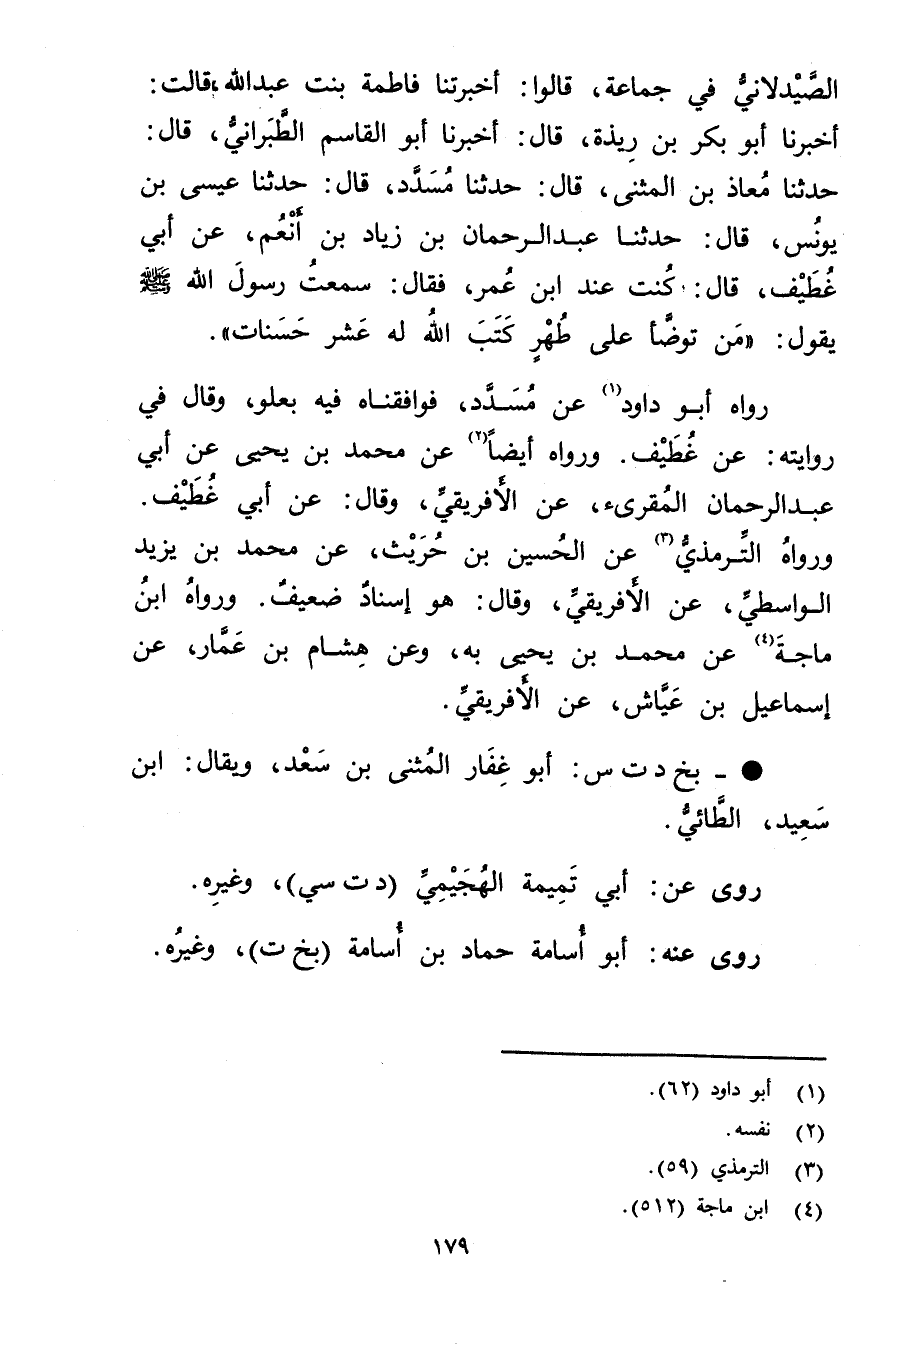 الصَّيْدلانيُّ في جماعة، قالوا: أخبرتنا فاطمة بنت عبدالله، قالت:
أخبرنا أبو بكر بن رِيذة، قال: أخبرنا أبو القاسم الطَّبَرانيُّ، قال:
حدثنا مُعاذ بن المثنى، قال: حدثنا مُسَدَّد، قال: حدثنا عيسى بن
يونُس، قال: حدثنا عبدالرحمان بن زياد بن أَنْعُم، عن أبي
غُطَيْف، قال: كُنت عند ابن عُمر، فقال: سمعتُ رسولَ الله ﷺ
يقول: «مَن توضَّأ على طُهْرٍ كَتَبَ اللهُ له عَشر حَسَنات».
رواه أبو داود(١) عن مُسَدَّد، فوافقناه فيه بعلو، وقال في
روايته: عن غُطَيْف. ورواه أيضاً(٢) عن محمد بن يحيى عن أبي
عبدالرحمان المُقرىء، عن الأَفريقيِّ، وقال: عن أبي غُطَيْف.
ورواهُ التِّرمذيُّ(٣) عن الحُسين بن حُرَيْث، عن محمد بن يزيد
الواسطيِّ، عن الأَفريقيِّ، وقال: هو إسنادٌ ضعيفٌ. ورواهُ ابنُ
ماجةَ(٤) عن محمد بن يحيى به، وعن هِشام بن عَمَّار، عن
إسماعيل بن عَيَّاش، عن الأَفريقيِّ.
● ـ بخ د ت س: أبو غِفَار المُثنى بن سَعْد، ويقال: ابن
سَعِيد، الطَّائيُّ.
روى عن: أبي تَمِيمة الهُجَيْمِيِّ (د ت سي)، وغيرِه.
روى عنه: أبو أُسامة حماد بن أُسامة (بخ ت)، وغيرُه.
(١) أبو داود (٦٢).
(٢) نفسه.
(٣) الترمذي (٥٩).
(٤) ابن ماجة (٥١٢).
١٧٩